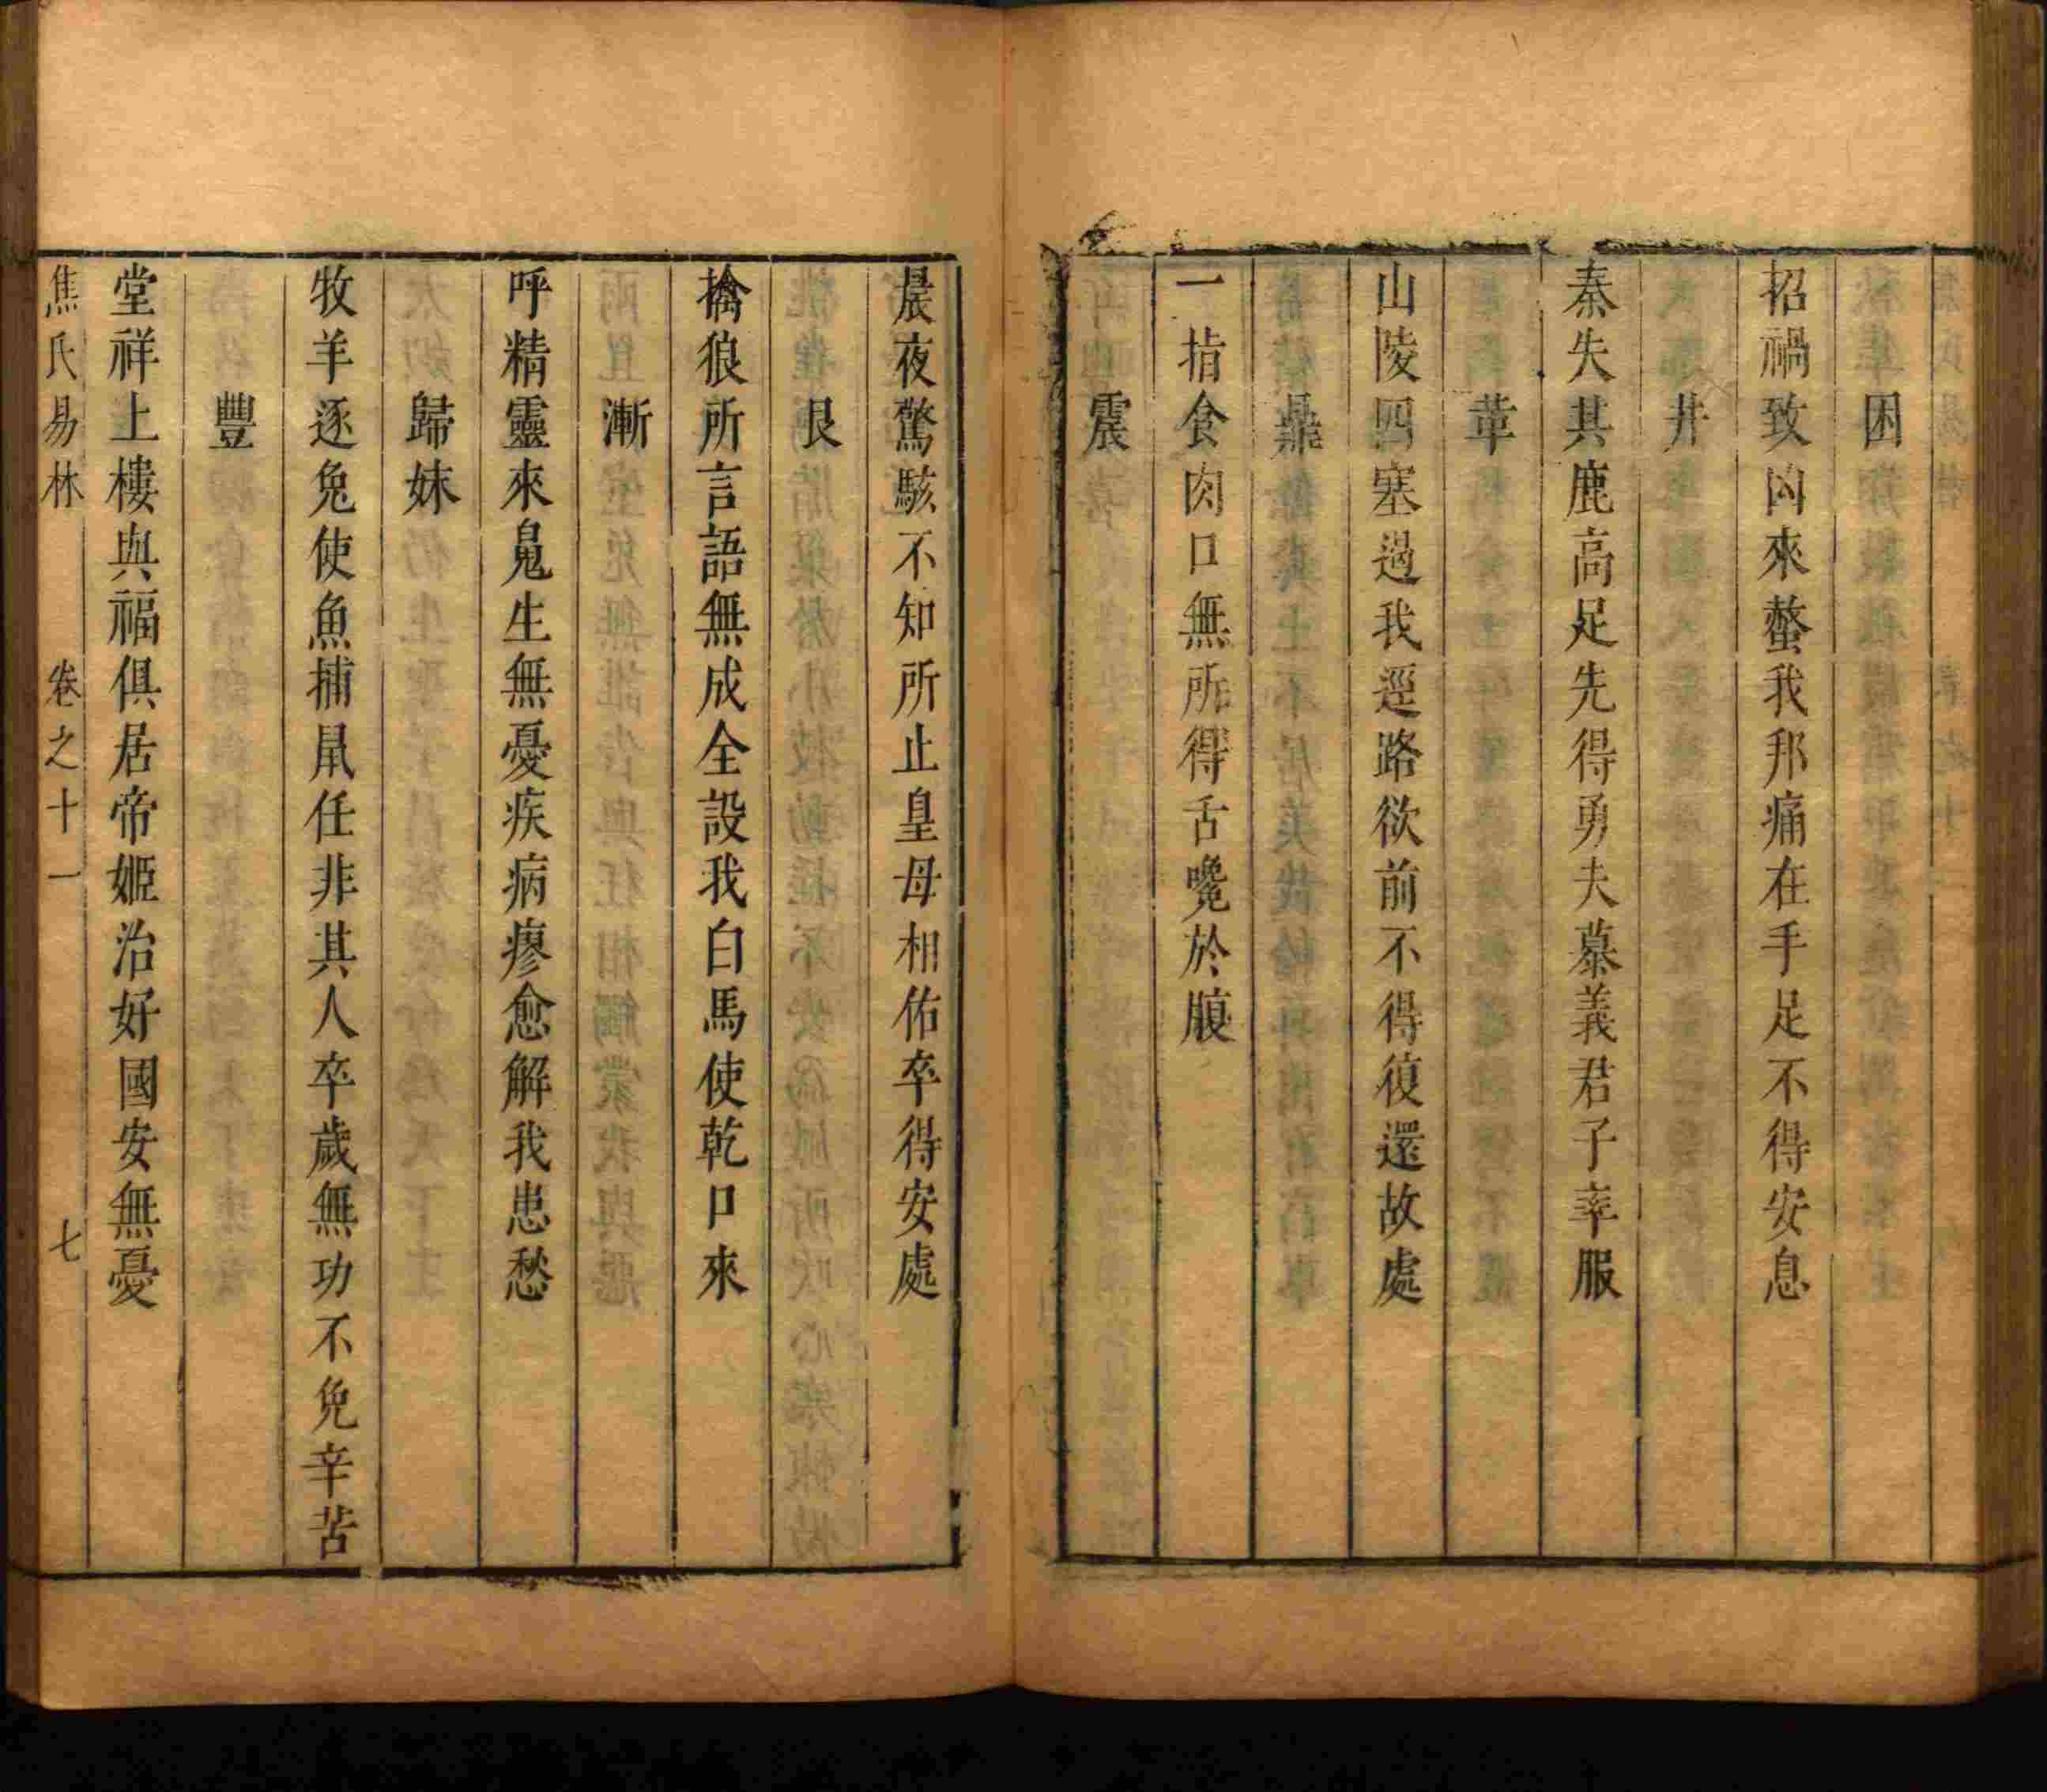 困
招禍致凶來螫我邦痛在手足不得安息
井
秦失其鹿高足先得勇夫慕義君子率服
革
山陵四塞過我逕路欲前不得復還故處
鼎
一指食肉口無所得舌饞於腹
震
晨夜驚駭不知所止皇母相佑卒得安處
艮
擒狼所言語無成全設我白馬使乾口來
漸
呼精靈來鬼生無憂疾病瘳愈解我患愁
歸妹
牧羊逐兔使魚捕鼠任非其人卒歲無功不免辛苦
豐
堂祥上樓與福俱居帝姬治好國安無憂
焦氏易林 卷之十一 七